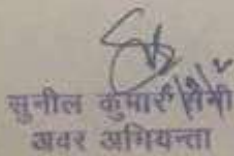 सुनील कुमार सैनी
अवर अभियन्ता